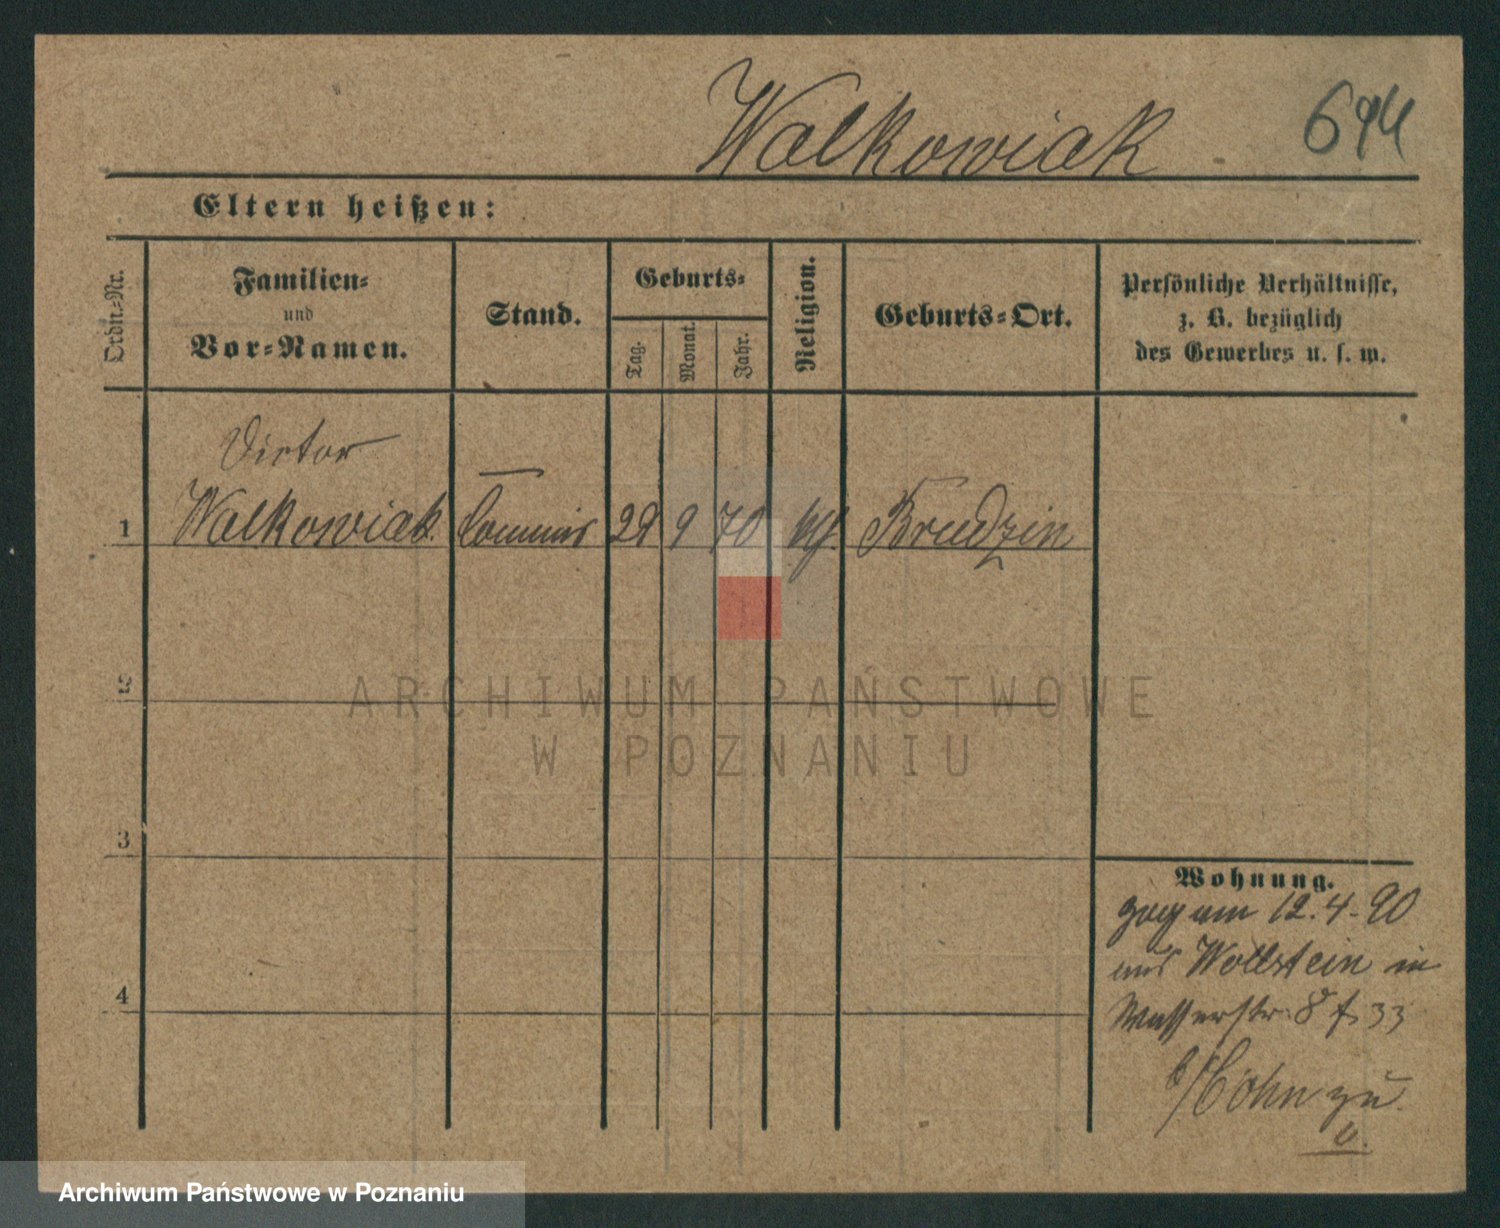 Walkowiak
644
Eltern heißen:
Ordn.-Nr.
Familien-
und
Vor-Namen.
Stand.
Geburts-
Tag.
Monat.
Jahr.
Religion.
Geburts-Ort.
Persönliche Verhältnisse,
z. B. bezüglich
des Gewerbes u. s. w.
Victor
1 Walkowiak. Commis 28 9 70 Brudzin
2
ARCHIWUM PAŃSTWOWE
W POZNANIU
3
Wohnung.
zog am 12.4.90
aus Wollstein in
Wasserstr. 8 f 33
b/ Cohn zu.
4
Archiwum Państwowe w Poznaniu